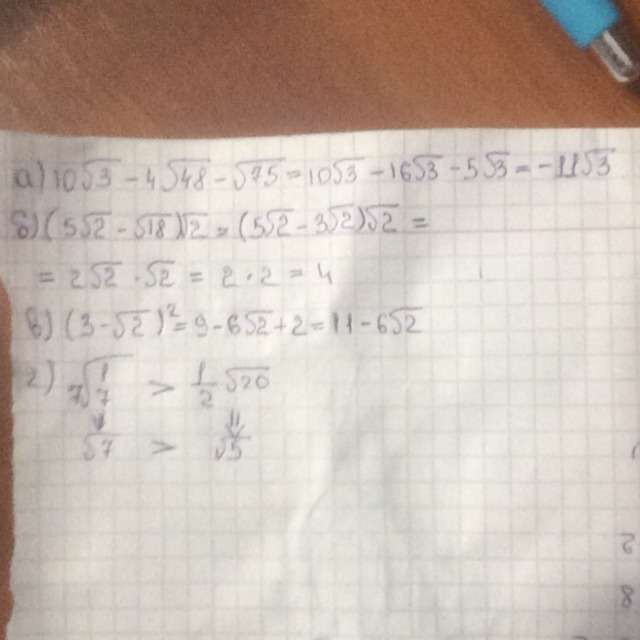 а) 10√3 - 4√48 - √75 = 10√3 - 16√3 - 5√3 = -11√3
б) (5√2 - √18)√2 = (5√2 - 3√2)√2 =
= 2√2 · √2 = 2 · 2 = 4
в) (3 - √2)² = 9 - 6√2 + 2 = 11 - 6√2
г) 7√1/7 > 1/2 √20
⇓ ⇓
√7 > √5
8